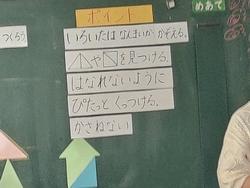 ポイント
つくろう
めあて
いろいたは なんまいか かぞえる。
や を見つける。
はなれないように
ぴたっと くっつける。
かさねない